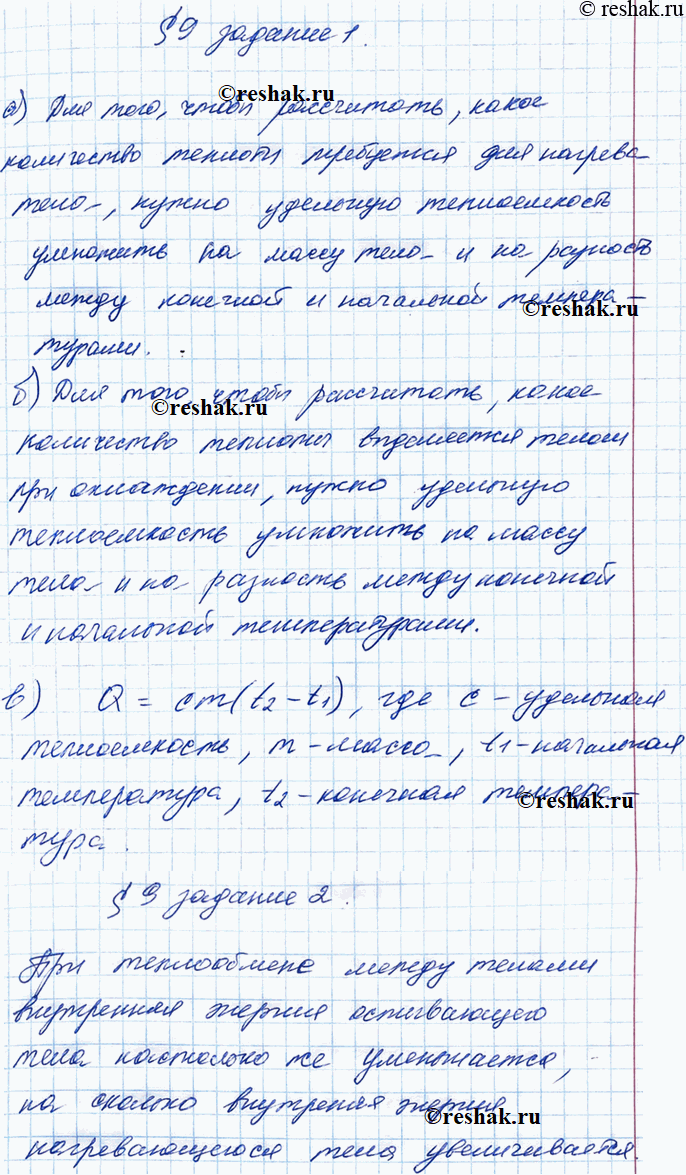 © reshak.ru
§9 задание 1.
© reshak.ru
а) Для того, чтобы рассчитать, какое
количество теплоты требуется для нагрева
тела, нужно удельную теплоемкость
умножить на массу тела и на разность
между конечной и начальной темпера-
© reshak.ru
турами.
б) Для того, чтобы рассчитать, какое
© reshak.ru
количество теплоты выделяется телом
при охлаждении, нужно удельную
теплоемкость умножить на массу
тела и на разность между конечной
и начальной температурами.
в) Q = cm(t2-t1), где c - удельная
теплоемкость, m - масса, t1 - начальная
температура, t2 - конечная темпера-
© reshak.ru
тура.
§9 задание 2.
При теплообмене между телами
внутренняя энергия остывающего
тела настолько же уменьшается,
на сколько внутреняя энергия
© reshak.ru
нагревающегося тела увеличивается.